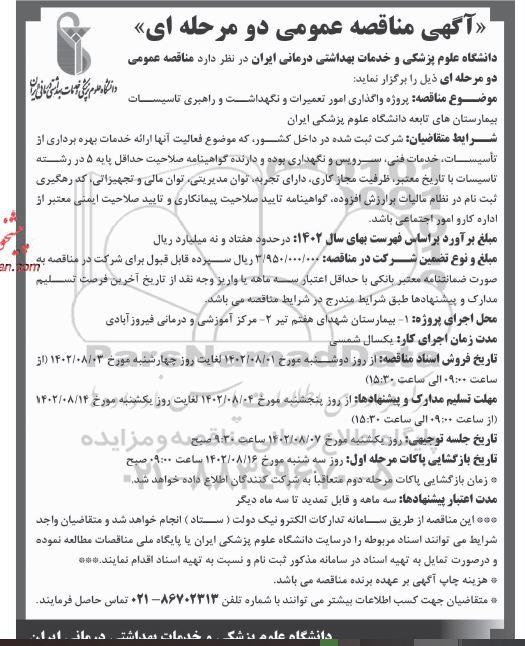 «آگهی مناقصه عمومی دو مرحله ای»
دانشگاه علوم پزشکی و خدمات بهداشتی درمانی ایران در نظر دارد مناقصه عمومی
دو مرحله ای ذیل را برگزار نماید:
موضــوع مناقصه: پروژه واگذاری امور تعمیرات و نگهداشــت و راهبری تاسیسات
بیمارستان های تابعه دانشگاه علوم پزشکی ایران
شــرایط متقاضیان: شرکت ثبت شده در داخل کشــور، که موضوع فعالیت آنها ارائه خدمات بهره برداری از
تأسیســات، خدمات فنی، ســرویس و نگهداری بوده و دارنده گواهینامه صلاحیت حداقل پایه ۵ در رشــته
تاسیسات با تاریخ معتبر، ظرفیت مجاز کاری، دارای تجربه، توان مدیریتی، توان مالی و تجهیزاتی، کد رهگیری
ثبت نام در نظام مالیات برارزش افزوده، گواهینامه تایید صلاحیت پیمانکاری و تایید صلاحیت ایمنی معتبر از
اداره کارو امور اجتماعی باشد.
مبلغ برآورد براساس فهرست بهای سال ۱۴۰۲: درحدود هفتاد و نه میلیارد ریال
مبلغ و نوع تضمین شــرکت در مناقصه: ۳/۹۵۰/۰۰۰/۰۰۰ ریال ســپرده قابل قبول برای شرکت در مناقصه به
صورت ضمانتنامه معتبر بانکی با حداقل اعتبار ســه ماهه یا واریز وجه نقد از تاریخ آخرین فرصت تســلیم
مدارک و پیشنهادها طبق شرایط مندرج در شرایط مناقصه می باشد.
محل اجرای پروژه: ۱- بیمارستان شهدای هفتم تیر ۲- مرکز آموزشی و درمانی فیروزآبادی
مدت زمان اجرای کار: یکسال شمسی
تاریخ فروش اسناد مناقصه: از روز دوشــنبه مورخ ۱۴۰۲/۰۸/۰۱ لغایت روز چهارشنبه مورخ ۱۴۰۲/۰۸/۰۳ (از
ساعت ۰۹:۰۰ الی ساعت ۱۵:۳۰)
مهلت تسلیم مدارک و پیشنهادها: از روز پنجشنبه مورخ ۱۴۰۲/۰۸/۰۴ لغایت روز یکشنبه مورخ ۱۴۰۲/۰۸/۱۴
(از ساعت ۰۹:۰۰ الی ساعت ۱۵:۳۰)
تاریخ جلسه توجیهی: روز یکشنبه مورخ ۱۴۰۲/۰۸/۰۷ ساعت ۹:۳۰ صبح
تاریخ بازگشایی پاکات مرحله اول: روز سه شنبه مورخ ۱۴۰۲/۰۸/۱۶ ساعت ۰۹:۰۰ صبح
* زمان بازگشایی پاکات مرحله دوم متعاقباً به شرکت کنندگان اطلاع داده خواهد شد.
مدت اعتبار پیشنهادها: سه ماهه و قابل تمدید تا سه ماه دیگر
*** این مناقصه از طریق ســامانه تدارکات الکترونیک دولت ( ستاد ) انجام خواهد شد و متقاضیان واجد
شرایط می توانند اسناد مربوطه را درسایت دانشگاه علوم پزشکی ایران یا پایگاه ملی مناقصات مطالعه نموده
و درصورت تمایل به تهیه اسناد در سامانه مذکور ثبت نام و نسبت به تهیه اسناد اقدام نمایند.***
* هزینه چاپ آگهی بر عهده برنده مناقصه می باشد.
* متقاضیان جهت کسب اطلاعات بیشتر می توانند با شماره تلفن ۸۶۷۰۲۳۱۳-۰۲۱ تماس حاصل فرمایند.
دانشگاه علوم پزشکی و خدمات بهداشتی درمانی ایران